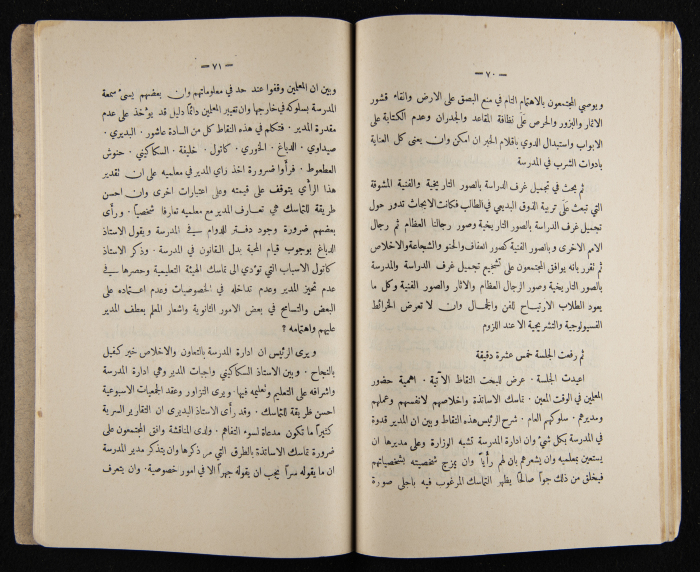 — ٧٠ —
ويوصي المجتمعون بالاهتمام التام في منع البصق على الارض والقاء قشور
الاثمار والبزور والحرص على نظافة المقاعد والجدران وعدم الكتابة على
الابواب واستبدال الدوي باقلام الحبر ان امكن وان يعنى كل العناية
بادوات الشرب في المدرسة
ثم بحث في تجميل غرف الدراسة بالصور التاريخية والفنية المشوقة
التي تبعث على تربية الذوق البديعي في الطالب فكانت الابحاث تدور حول
تجميل غرف الدراسة بالصور التاريخية وصور رجالنا العظام ثم رجال
الامم الاخرى وبالصور الفنية كصور العفاف والحنو والشجاعة والاخلاص
ثم تقرر بانه يوافق المجتمعون على تشجيع تجميل غرف الدراسة والمدرسة
بالصور التاريخية وصور الرجال العظام والاثار والصور الفنية وكل ما
يعود الطلاب الارتياح للفن والجمال وان لا تعرض الخرائط
الفسيولوجية والتشريحية الا عند اللزوم
ثم رفعت الجلسة خمس عشرة دقيقة
اعيدت الجلسة . عرض للبحث النقاط الآتية . اهمية حضور
المعلمين في الوقت المعين . تماسك الاساتذة واخلاصهم لانفسهم وعملهم
ومديرهم . سلوكهم العام . شرح الرئيس هذه النقاط وبين ان المدير قدوة
في المدرسة بكل شيء وان ادارة المدرسة تشبه الوزارة وعلى مديرها ان
يستعين بمعلميه وان يشعرهم بان لهم رأياً وان يمزج شخصيته بشخصياتهم
فيخلق من ذلك جواً صالحاً يظهر التماسك المرغوب فيه باجلى صورة
— ٧١ —
وبين ان المعلمين وقفوا عند حد في معلوماتهم وان بعضهم يسيء سمعة
المدرسة بسلوكه في خارجها وان تغيير المعلمين دائماً دليل قد يؤخذ على عدم
مقدرة المدير . فتكلم في هذه النقاط كل من السادة عاشور . البديري .
صيداوي . الدباغ . الخوري . كاتول . خليفة . السكاكيني . حنوش
العطعوط . فرأوا ضرورة اخذ راي المدير في معلميه على ان تقدير
هذا الرأي يتوقف على قيمته وعلى اعتبارات اخرى وان احسن
طريقة للتماسك هي تعارف المدير مع معلميه تعارفا شخصياً . ورأى
بعضهم ضرورة وجود دفتر للدوام في المدرسة ويقول الاستاذ
الدباغ بوجوب قيام المحبة بدل القانون في المدرسة . وذكر الاستاذ
كاتول الاسباب التي تؤدي الى تماسك الهيئة التعليمية وحصرها في
عدم تحيز المدير وعدم تداخله في الخصوصيات وعدم اعتماده على
البعض والتسامح في بعض الامور الثانوية واشعار المعلم بعطف المدير
عليهم واهتمامه ؟
ويرى الرئيس ان ادارة المدرسة بالتعاون والاخلاص خير كفيل
بالنجاح . وبين الاستاذ السكاكيني واجبات المدير وهي ادارة المدرسة
واشرافه على التعليم وتعليمه فيها . ويرى التزاور وعقد الجمعيات الاسبوعية
احسن طريقة للتماسك . وقد رأى الاستاذ البديرى ان التقارير السرية
كثيراً ما تكون مدعاة لسوء التفاهم . ولدى المناقشة وافق المجتمعون على
ضرورة تماسك الاساتذة بالطرق التي مر ذكرها وان يتذكر مدير المدرسة
ان ما يقوله سراً يجب ان يقوله جهراً الا في امور خصوصية . وان يتعرف